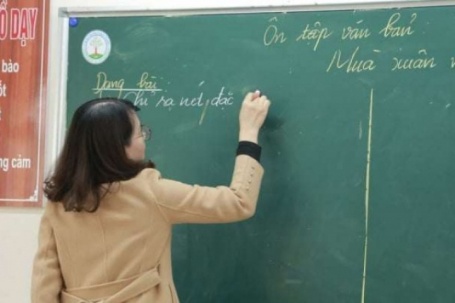 Ổ DẠY
bảo
ốt
ng cảm
Ôn tập văn bản
Mùa xuân n
Dạng bài
Chỉ ra nét đặc